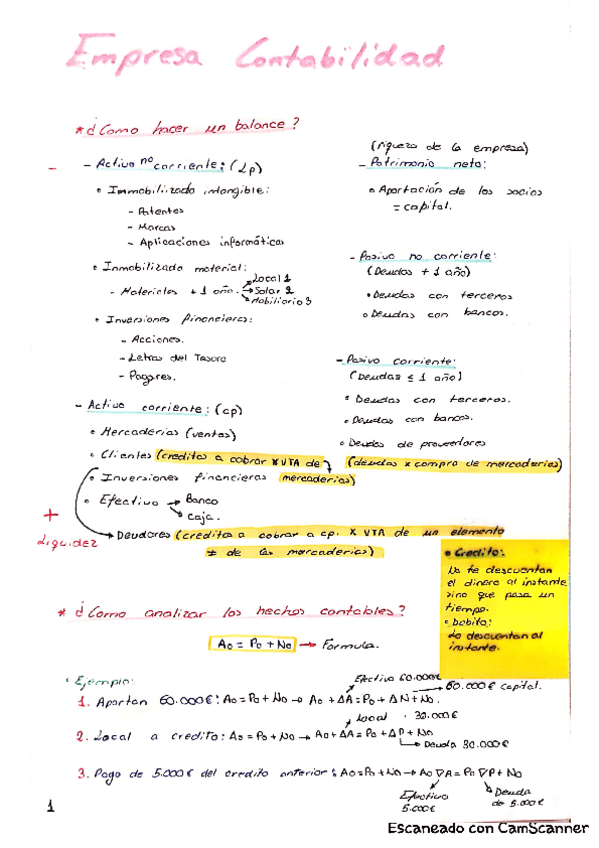 Empresa Contabilidad
* ¿Como hacer un balance?
- Activo no corriente: (Lp)
• Immobilizado intangible:
- Patentes
- Marcas
- Aplicaciones informática
• Inmobilizado material:
- Materiales + 1 año.
Local 1
Solar 2
Mobiliario 3
• Inversiones financieras:
- Acciones.
- Letras del Tesoro
- Pagares.
- Activo corriente: (cp)
• Mercaderias (ventas)
• Clientes (creditos a cobrar x VTA de
mercaderias)
• Inversiones financieras
• Efectivo
Banco
Caja.
Deudores (credito a cobrar a cp. x VTA de un elemento
≠ de las mercaderias)
-
+
Liquidez
(riqueza de la empresa)
- Patrimonio neto:
• Aportación de los socios
= capital.
- Pasivo no corriente:
(Deudas + 1 año)
• Deudas con terceros
• Deudas con bancos.
- Pasivo corriente:
(Deudas ≤ 1 año)
• Deudas con terceros.
• Deudas con bancos.
• Deudas de proveedores
(deudas x compra de mercaderias)
• Credito:
No te descuentan
el dinero al instante
sino que pasa un
tiempo.
• Debito:
Lo descuentan al
instante.
* ¿Como analizar los hechos contables?
A0 = P0 + N0 → Formula.
• Ejemplo:
1. Aportan 60.000€: A0 = P0 + N0 → A0 + ΔA = P0 + ΔN + N0.
Efectivo 60.000€
60.000€ capital.
2. Local a credito: A0 = P0 + N0 → A0 + ΔA = P0 + ΔP + N0
Local 30.000€
Deuda 30.000€
3. Pago de 5.000€ del credito anterior: A0 = P0 + N0 → A0 ∇A = P0 ∇P + N0
Efectivo
5.000€
Deuda
de 5.000€
1
Escaneado con CamScanner